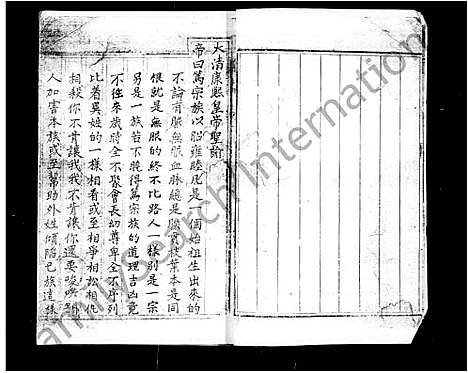 大清康熙皇帝聖諭
帝曰篤宗族以昭雍睦凡是一個始祖生出來的
不論有服無服血脈總是 貫枝葉本是同
根就是無服的終不比路人一樣別是一宗
另是一族若不曉得篤宗族的道理吉凶竟
不往來歲時全不聚會長幼尊卑全不序列
比着異姓的一樣相看或至相爭相訟相仇
相殺你不肯讓我我不肯讓你還要
人加害本族或至幫助外姓傾陷己族這樣
FamilySearch International